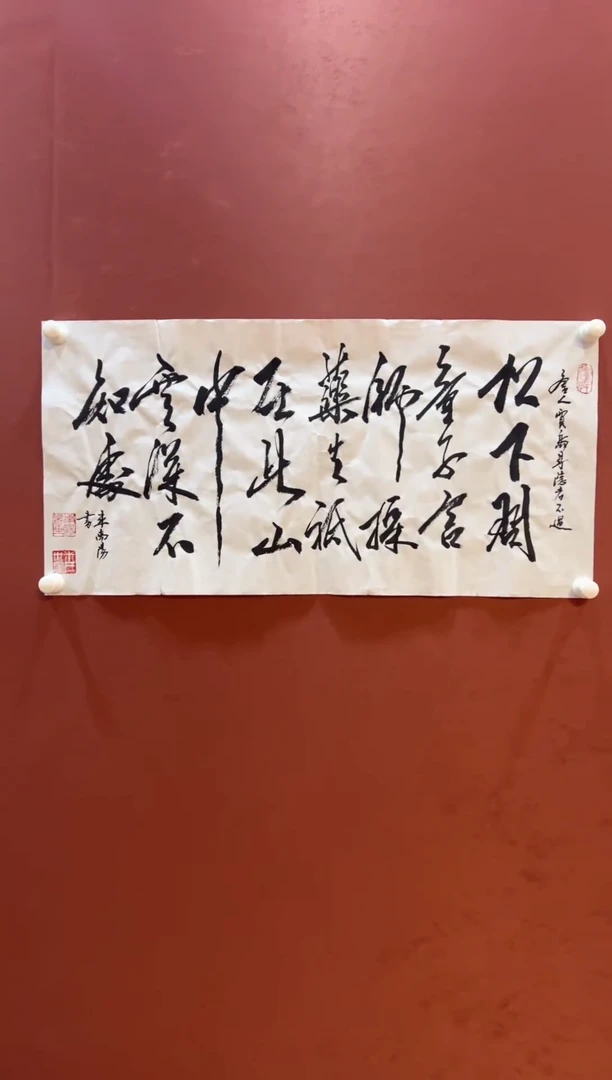 唐人賈島尋隱者不遇
松下問
童子言
師採
藥去祗
在此山
中
雲深不
知處
東南陽
書